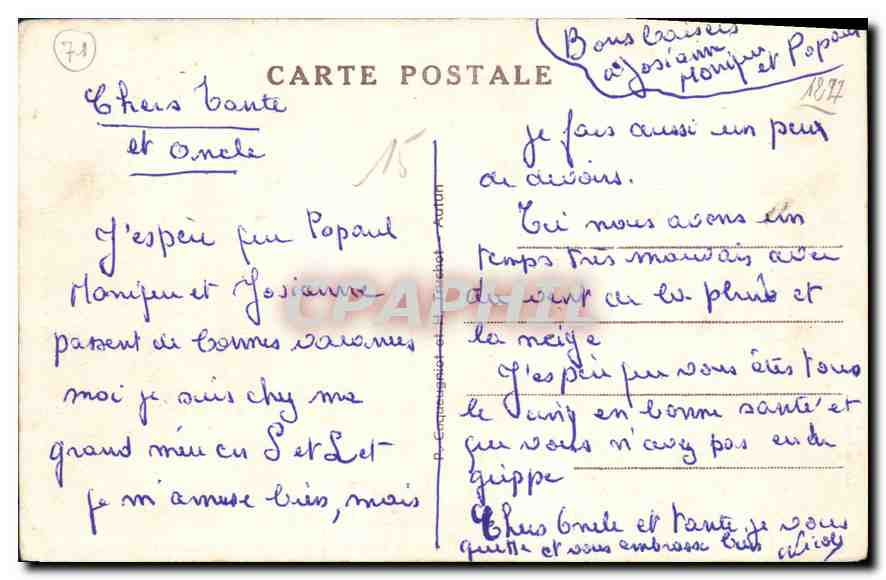 71
CARTE POSTALE
Bons baisers
à Josiann
Monique et Popaul
1877
15
Chers tante
et oncle
J'espère que Popaul
Monique et Josianne
passent de bonnes vacances
moi je suis chez ma
grand mère en S et L et
je m'amuse bien, mais
P. Enqueugniot et H. Truchot - Autun
CPAPHIL
je fais aussi un peux
de devoirs.
Ici nous avons un
temps très mauvais avec
du vent de la pluie et
la neige
J'espère que vous êtes tous
le cinq en bonne santé et
que vous n'avez pas eu de
grippe
Chers Oncle et tante je vous
quitte et vous embrasse bien Nicole